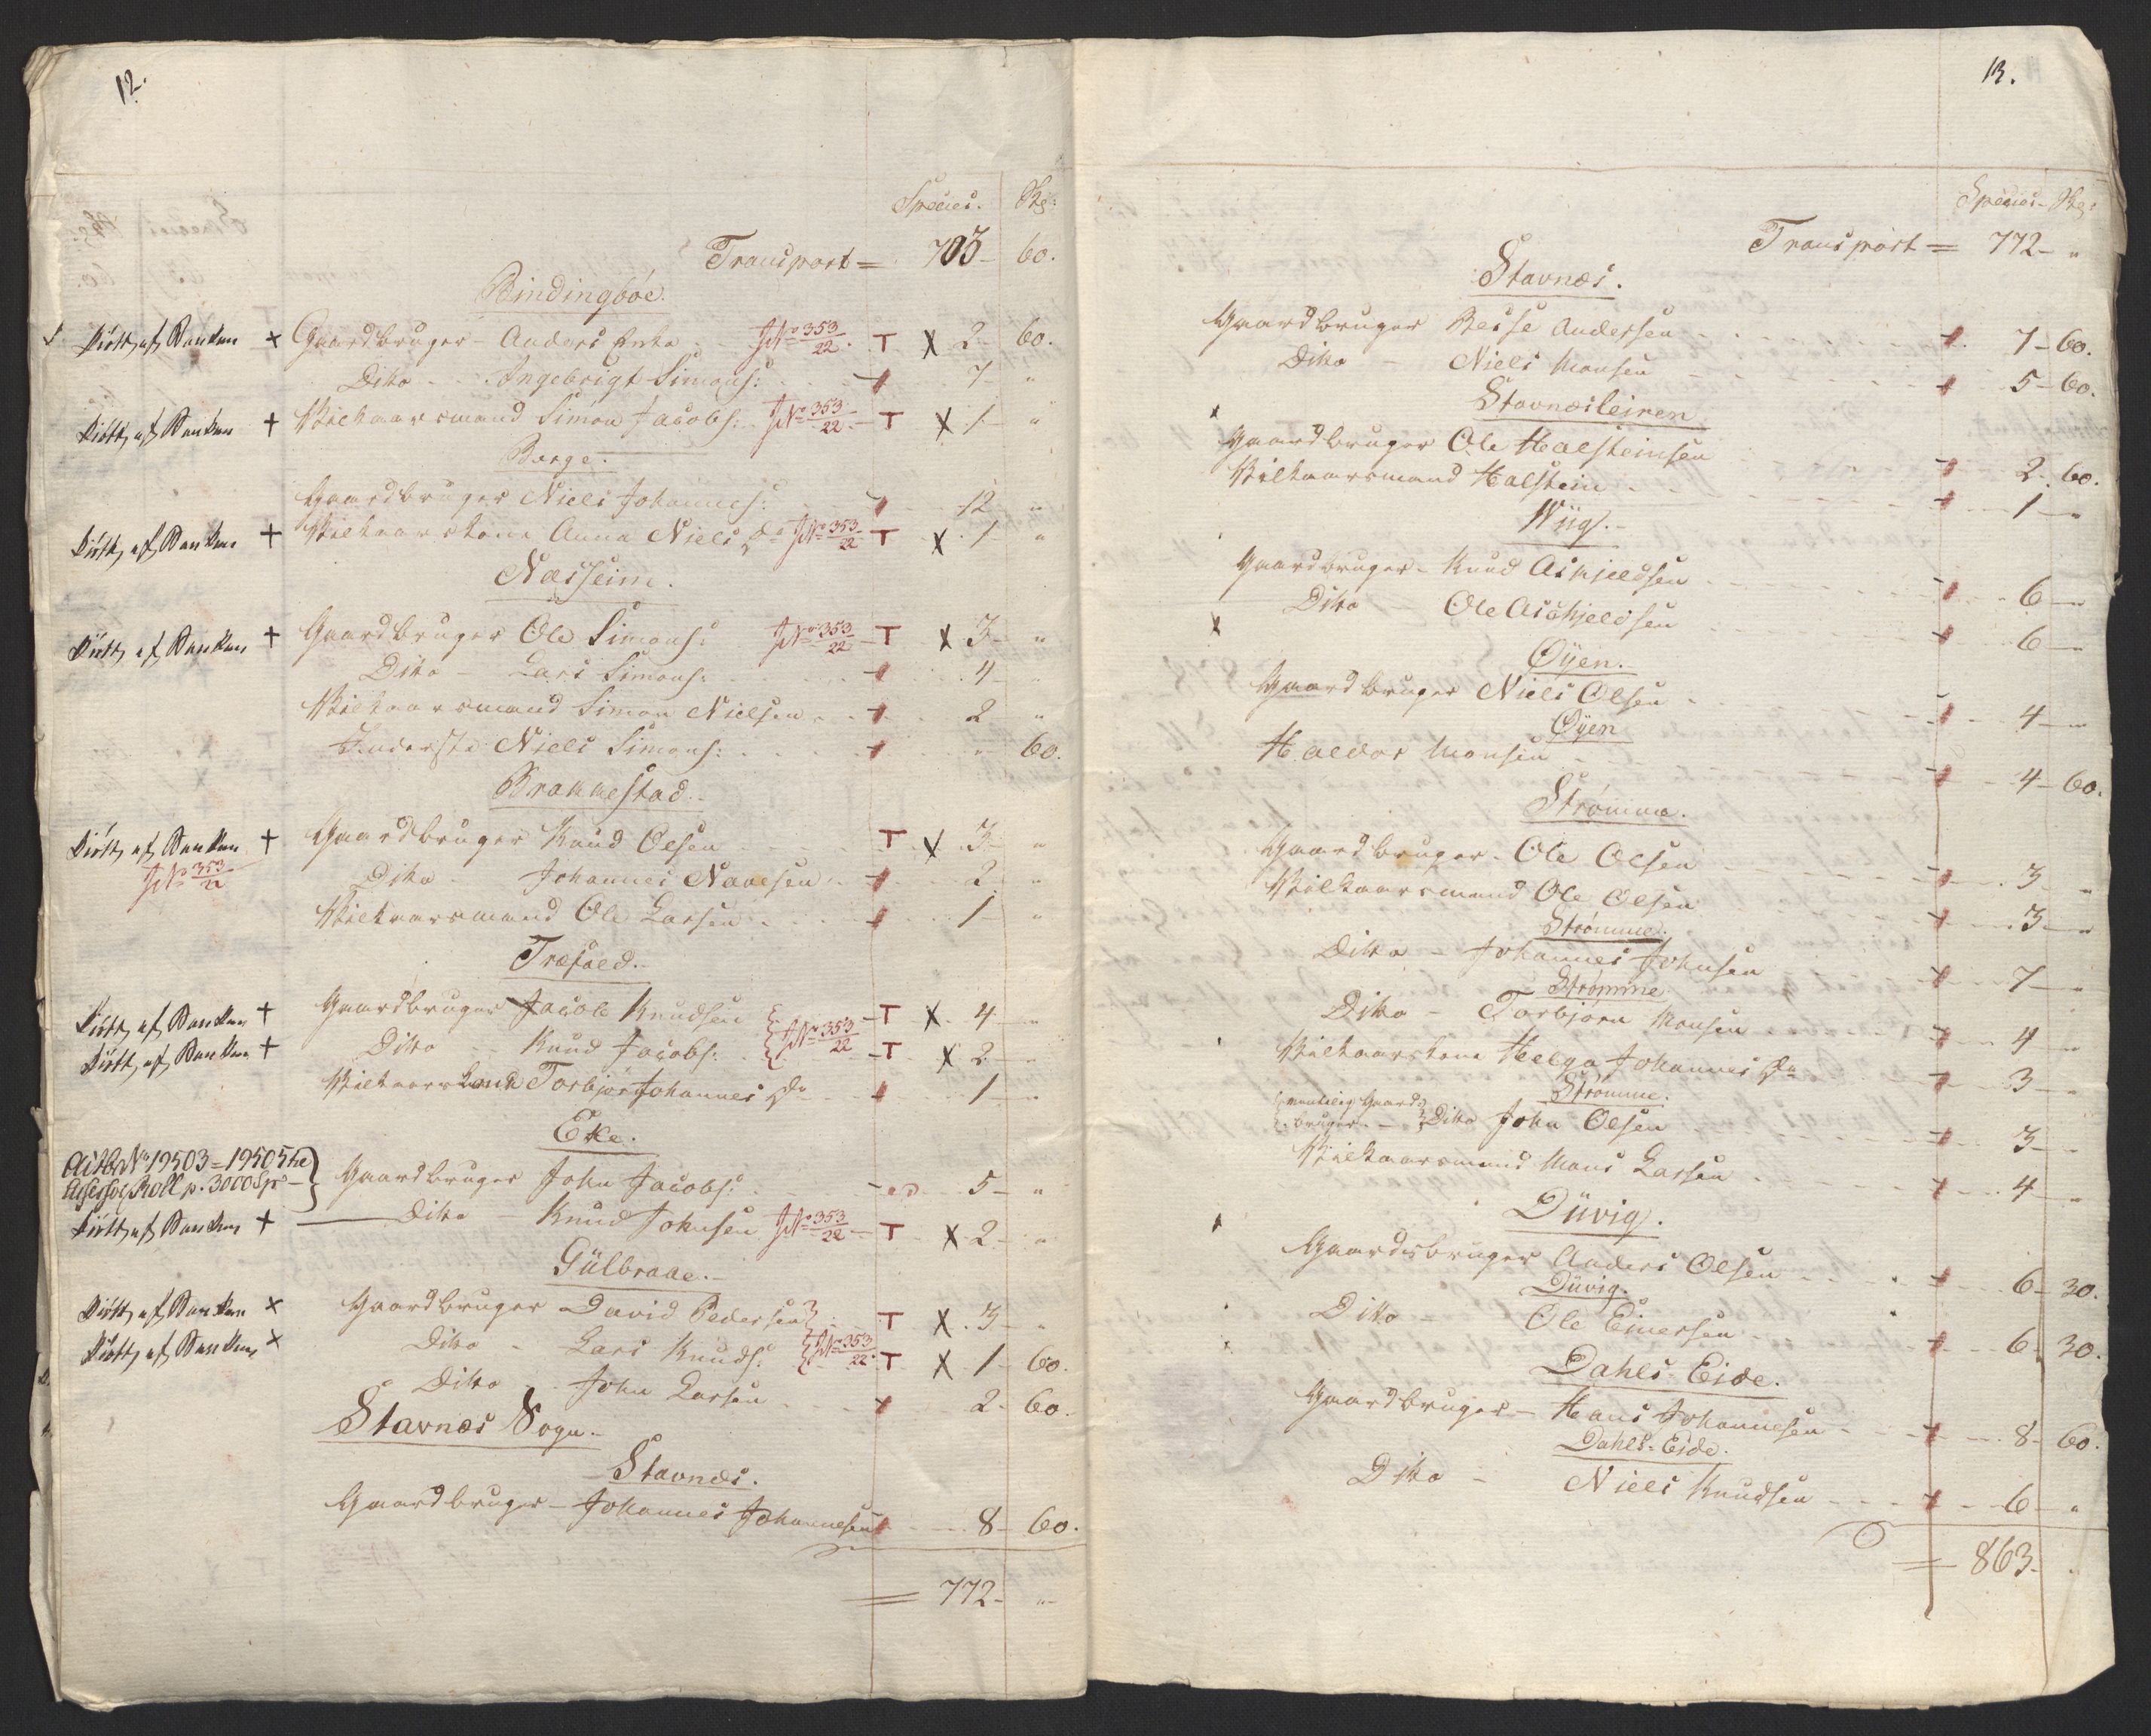 12.
Species. Skg:
Transport = 703 - 60.
Bindingbøe.
Kiøbt af Banken × Gaardbruger - Anders Enke JNo 353/22. T X 2 - 60.
Dito - Ingebrigt Simons: 7 - "
Kiøbt af Banken + Vilkaarsmand Simon Jacobs: JNo 353/22 - T X 1 - "
Berge.
Gaardbruger Niels Johannes: 12 "
Kiøbt af Banken + Vilkaarskone Anna Niels Dr JNo 353/22 T X 1 - "
Næsseim.
Kiøbt af Banken + Gaardbruger Ole Simons: JNo 353/22 T X 3 - "
Dito - Lars Simons: 4 - "
Vilkaarsmand Simon Nielsen 2 - "
Inderste Niels Simons: " 60.
Brakkestad.
Kiøbt af Banken + Gaardbruger Knud Olsen T X 3 - "
JNo 353/22
Dito - Johannes Navesen 2 - "
Vilkaarsmand Ole Larsen 1 - "
Træfald.
Kiøbt af Banken + Gaardbruger Jacob Knudsen T X 4 - "
Kiøbt af Banken + Dito - Knud Jacobs: JNo 353/22 T X 2 - "
Vilkaarskone Torbjør Johannes Dr 1 - "
Eke.
No 19503 = 19505 Roll p. 3000 Sp Gaardbruger John Jacobs: 5 - "
Kiøbt af Banken + Dito - Knud Johnsen JNo 353/22 - T X 2 - "
Gülbraae.
Kiøbt af Banken × Gaardbruger David Pedersen T X 3 - "
Kiøbt af Banken × Dito - Lars Knuds: JNo 353/22 T X 1 - 60.
Dito - John Larsen 2 - 60.
Stavnæs Sogn.
Stavnæs.
Gaardbruger - Johannes Johannesen 8 - 60.
= 772 - "
13.
Species - Skg:
Transport = 772 - "
Stavnæs.
Gaardbruger Besse Andersen 7 - 60.
Dito - Niels Monsen 5 - 60.
Stavnæsleiren
Gaardbruger Ole Halsteinsen 2 - 60.
Vilkaarsmand Halstein 1 - "
Wüg.
Gaardbruger - Knud Askjeldsen 6 - "
Dito - Ole Aschjeldsen 6 - "
Øyen.
Gaardbruger Niels Olsen 4 - "
Øyen
Haldor Monsen 4 - 60.
Strømme.
Gaardbruger - Ole Olsen 3 - "
Vilkaarsmand Ole Olsen 3 - "
Strømme.
Dito - Johannes Johnsen 7 - "
Strømme
Dito - Torbjørn Monsen 4 - "
Vilkaarskone Helga Johannes Dr 3 - "
Strømme.
Gaard-bruger - Dito John Olsen 3 - "
Vilkaarsmand Mons Larsen 4 - "
Düvig.
Gaardsbruger Anders Olsen 6 - 30.
Düvig.
Dito - Ole Einersen 6 - 30.
Dahls-Eide.
Gaardbruger - Hans Johannesen 8 - 60.
Dahls-Eide.
Dito - Niels Knudsen 6 - "
= 863 -